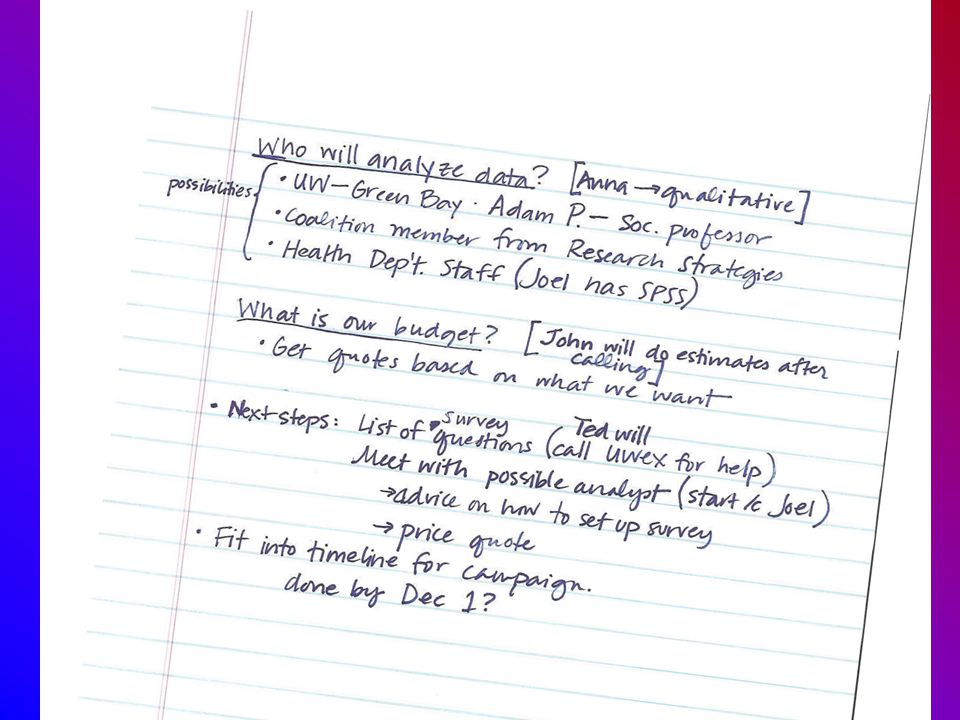 Who will analyze data? [Anna → qualitative]
possibilities { • UW-Green Bay · Adam P. – Soc. professor
• Coalition member from Research Strategies
• Health Dep't. Staff (Joel has SPSS)
What is our budget? [John will do estimates after calling]
• Get quotes based on what we want
• Next steps: List of survey questions (Ted will call UWEX for help)
Meet with possible analyst (start Joel)
→ advice on how to set up survey
→ price quote
• Fit into timeline for campaign.
done by Dec 1?